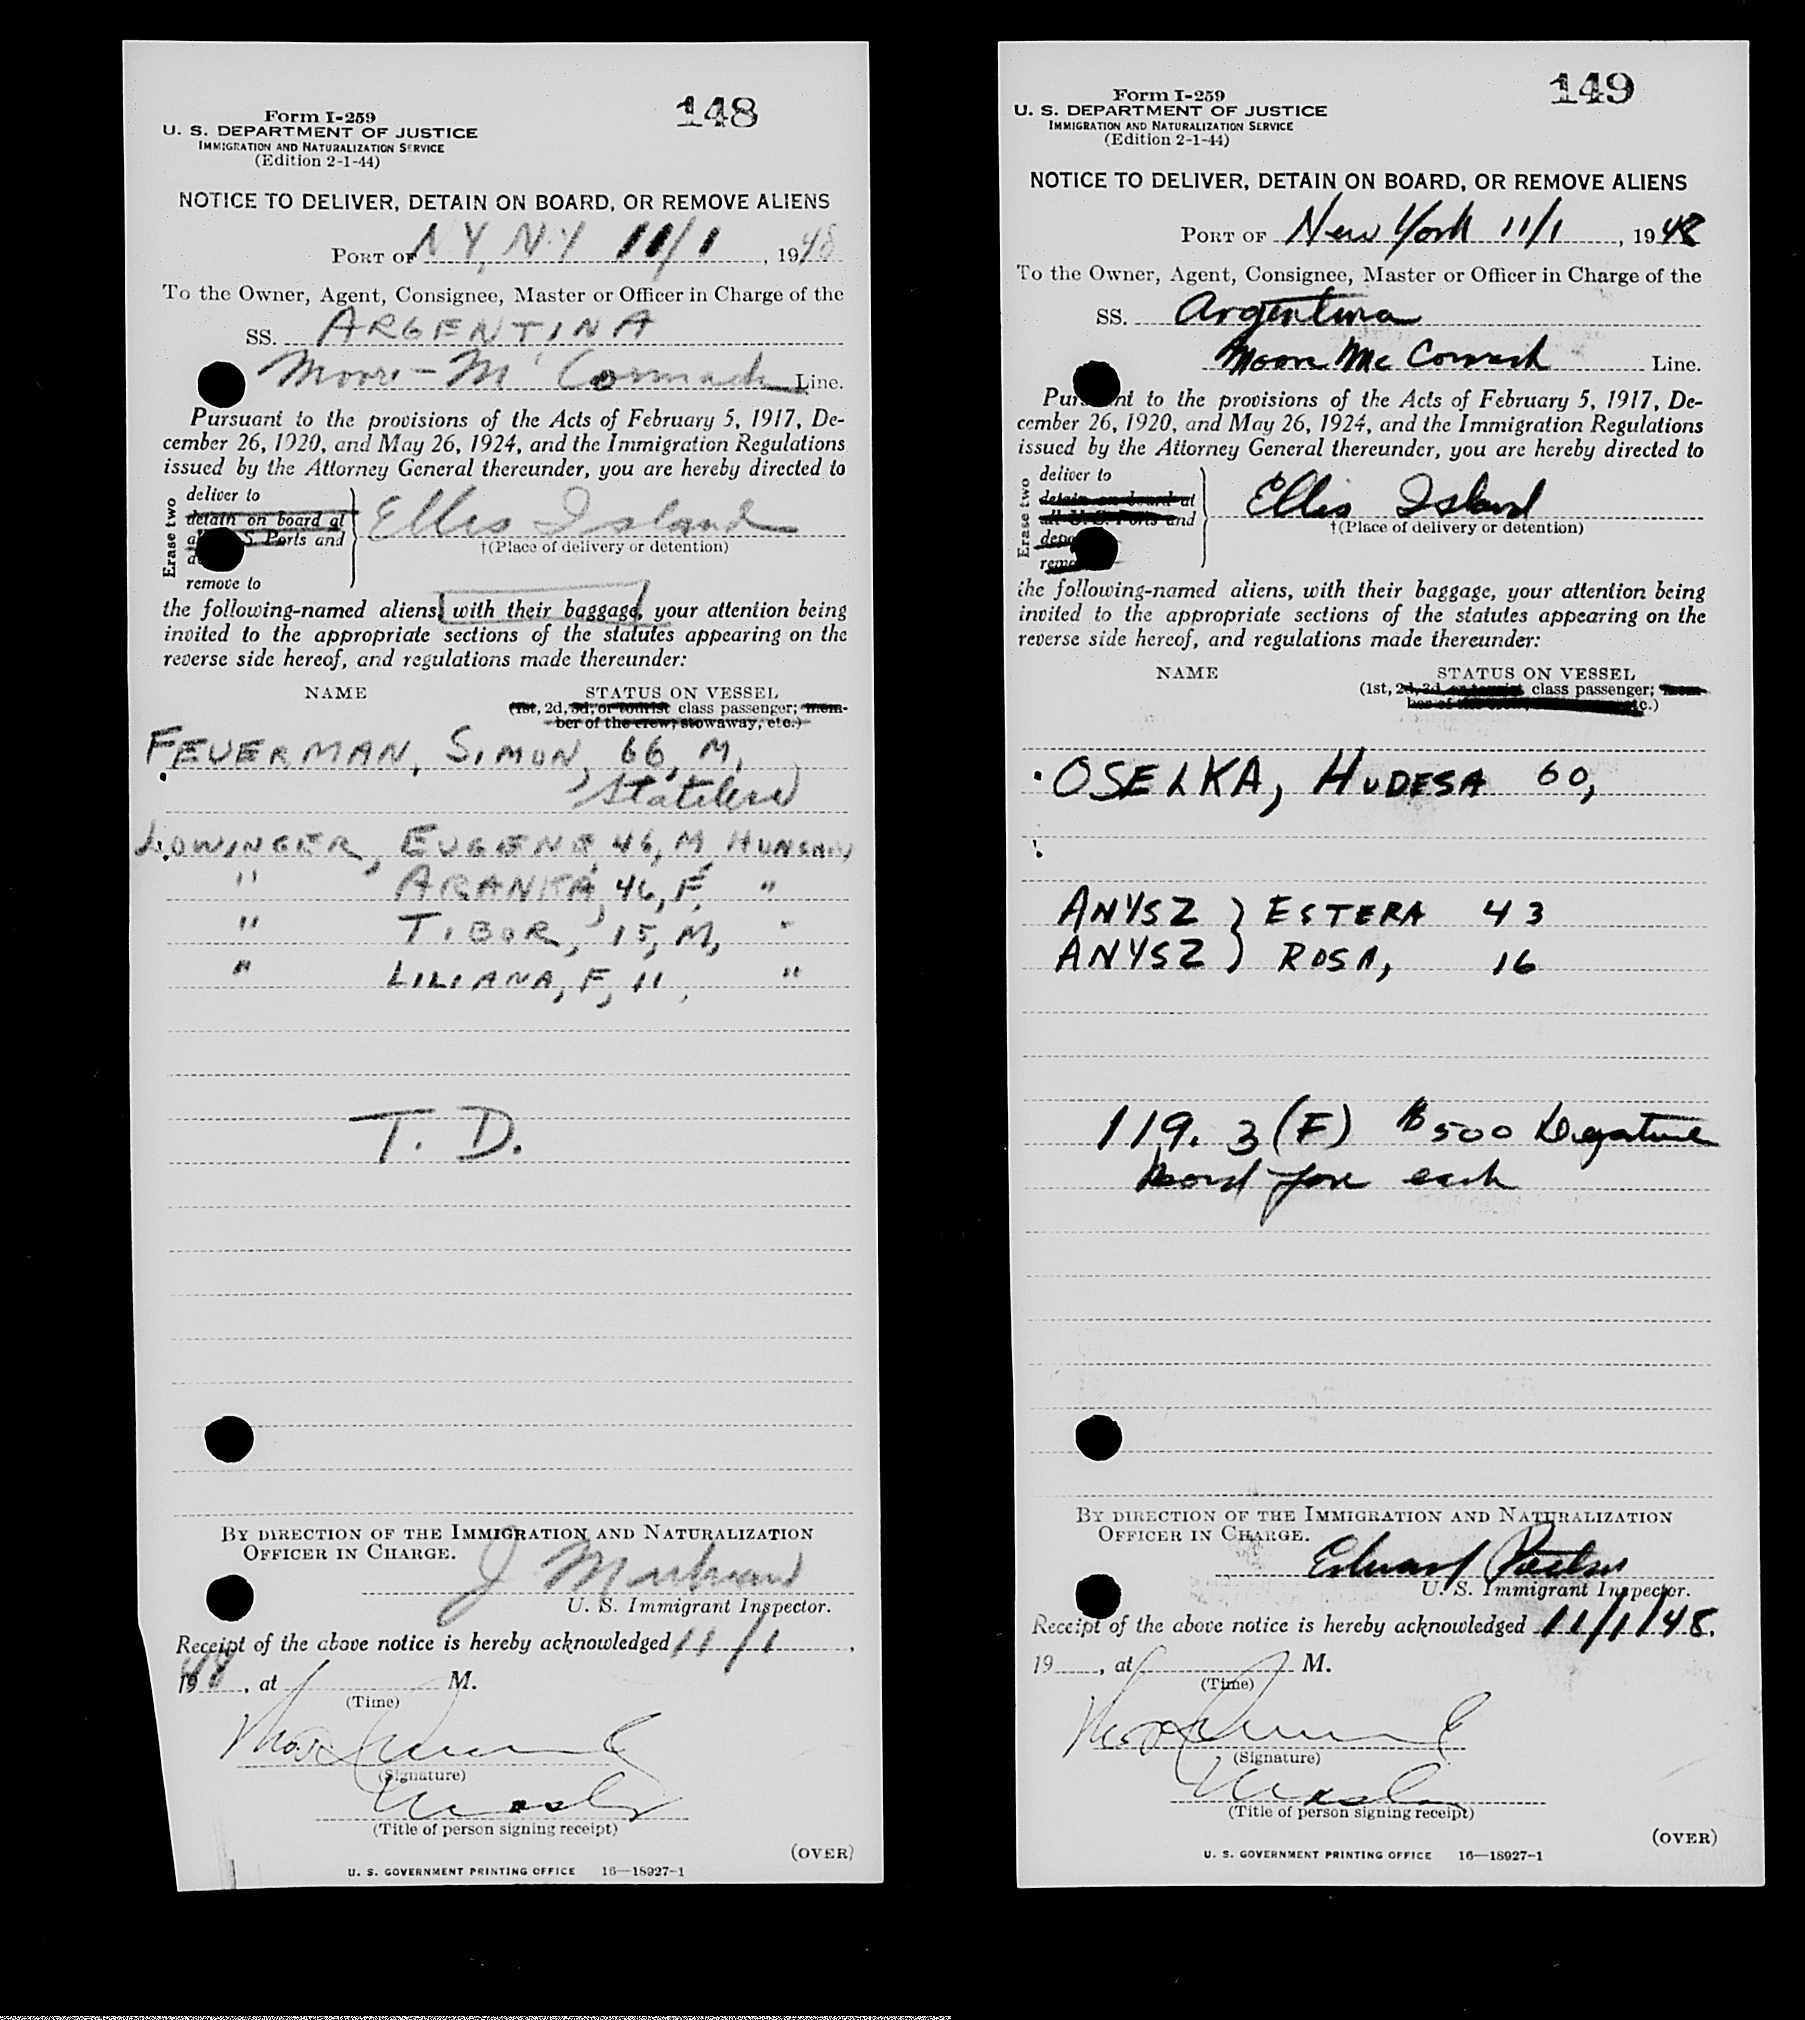 148
Form I-259
U. S. DEPARTMENT OF JUSTICE
IMMIGRATION AND NATURALIZATION SERVICE
(Edition 2-1-44)
NOTICE TO DELIVER, DETAIN ON BOARD, OR REMOVE ALIENS
PORT OF N Y, N.Y 11/1, 1948
To the Owner, Agent, Consignee, Master or Officer in Charge of the
SS. ARGENTINA
Moore-McCormack Line.
Pursuant to the provisions of the Acts of February 5, 1917, De-
cember 26, 1920, and May 26, 1924, and the Immigration Regulations
issued by the Attorney General thereunder, you are hereby directed to
Erase two
deliver to
detain on board at
S. Ports and
remove to
Ellis Island
†(Place of delivery or detention)
the following-named aliens, with their baggage, your attention being
invited to the appropriate sections of the statutes appearing on the
reverse side hereof, and regulations made thereunder:
NAME STATUS ON VESSEL
(1st, 2d, 3d, or tourist class passenger; mem-
ber of the crew, stowaway, etc.)
FEUERMAN, SIMON, 66, M,
Stateless
LOWINGER, EUGENE, 46, M, HUNGARY
" ARANKA, 46, F, "
" TIBOR, 15, M, "
" LILIANA, F, 11, "
T. D.
BY DIRECTION OF THE IMMIGRATION AND NATURALIZATION
OFFICER IN CHARGE.
J
U. S. Immigrant Inspector.
Receipt of the above notice is hereby acknowledged 11/1,
1948, at M.
(Time)
Thos
(Signature)
(Title of person signing receipt)
(OVER)
U. S. GOVERNMENT PRINTING OFFICE 16—18927-1
149
Form I-259
U. S. DEPARTMENT OF JUSTICE
IMMIGRATION AND NATURALIZATION SERVICE
(Edition 2-1-44)
NOTICE TO DELIVER, DETAIN ON BOARD, OR REMOVE ALIENS
PORT OF New York 11/1, 1948
To the Owner, Agent, Consignee, Master or Officer in Charge of the
SS. Argentina
Moore McCormack Line.
Pursuant to the provisions of the Acts of February 5, 1917, De-
cember 26, 1920, and May 26, 1924, and the Immigration Regulations
issued by the Attorney General thereunder, you are hereby directed to
Erase two
deliver to
detain on board at
all U. S. Ports and
Ellis Island
†(Place of delivery or detention)
the following-named aliens, with their baggage, your attention being
invited to the appropriate sections of the statutes appearing on the
reverse side hereof, and regulations made thereunder:
NAME STATUS ON VESSEL
(1st, 2d, 3d, or tourist class passenger; mem-
ber of the etc.)
OSELKA, HUDESA 60,
ANYSZ } ESTERA 43
ANYSZ } ROSA, 16
119. 3 (F) $500 Departure
bond for each
BY DIRECTION OF THE IMMIGRATION AND NATURALIZATION
OFFICER IN CHARGE.
Edward
U. S. Immigrant Inspector.
Receipt of the above notice is hereby acknowledged 11/1/48.
19, at M.
(Time)
Thos
(Signature)
(Title of person signing receipt)
(OVER)
U. S. GOVERNMENT PRINTING OFFICE 16—18927-1